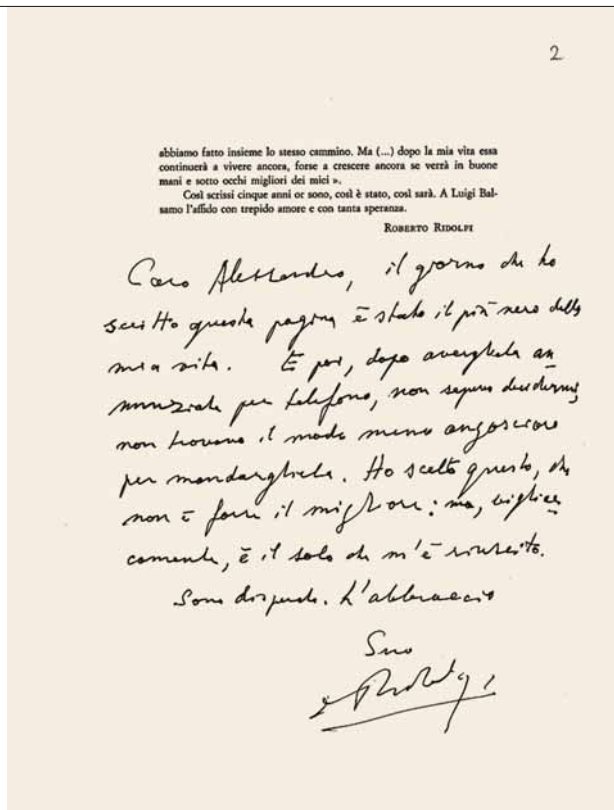 2
abbiamo fatto insieme lo stesso cammino. Ma (...) dopo la mia vita essa
continuerà a vivere ancora, forse a crescere ancora se verrà in buone
mani e sotto occhi migliori dei miei ».
Così scrissi cinque anni or sono, così è stato, così sarà. A Luigi Bal-
samo l'affido con trepido amore e con tanta speranza.
ROBERTO RIDOLFI
Caro Alessandro, il giorno che ho
scritto questa pagina è stato il più nero della
mia vita. E poi, dopo avergliela an
nunziata per telefono, non sapevo decidermi,
non trovavo il modo meno angoscioso
per mandargliela. Ho scelto questo, che
non è forse il migliore; ma, vigliac
camente, è il solo che m'è riuscito.
Sono disperato. L'abbraccio
Suo
Ridolfi